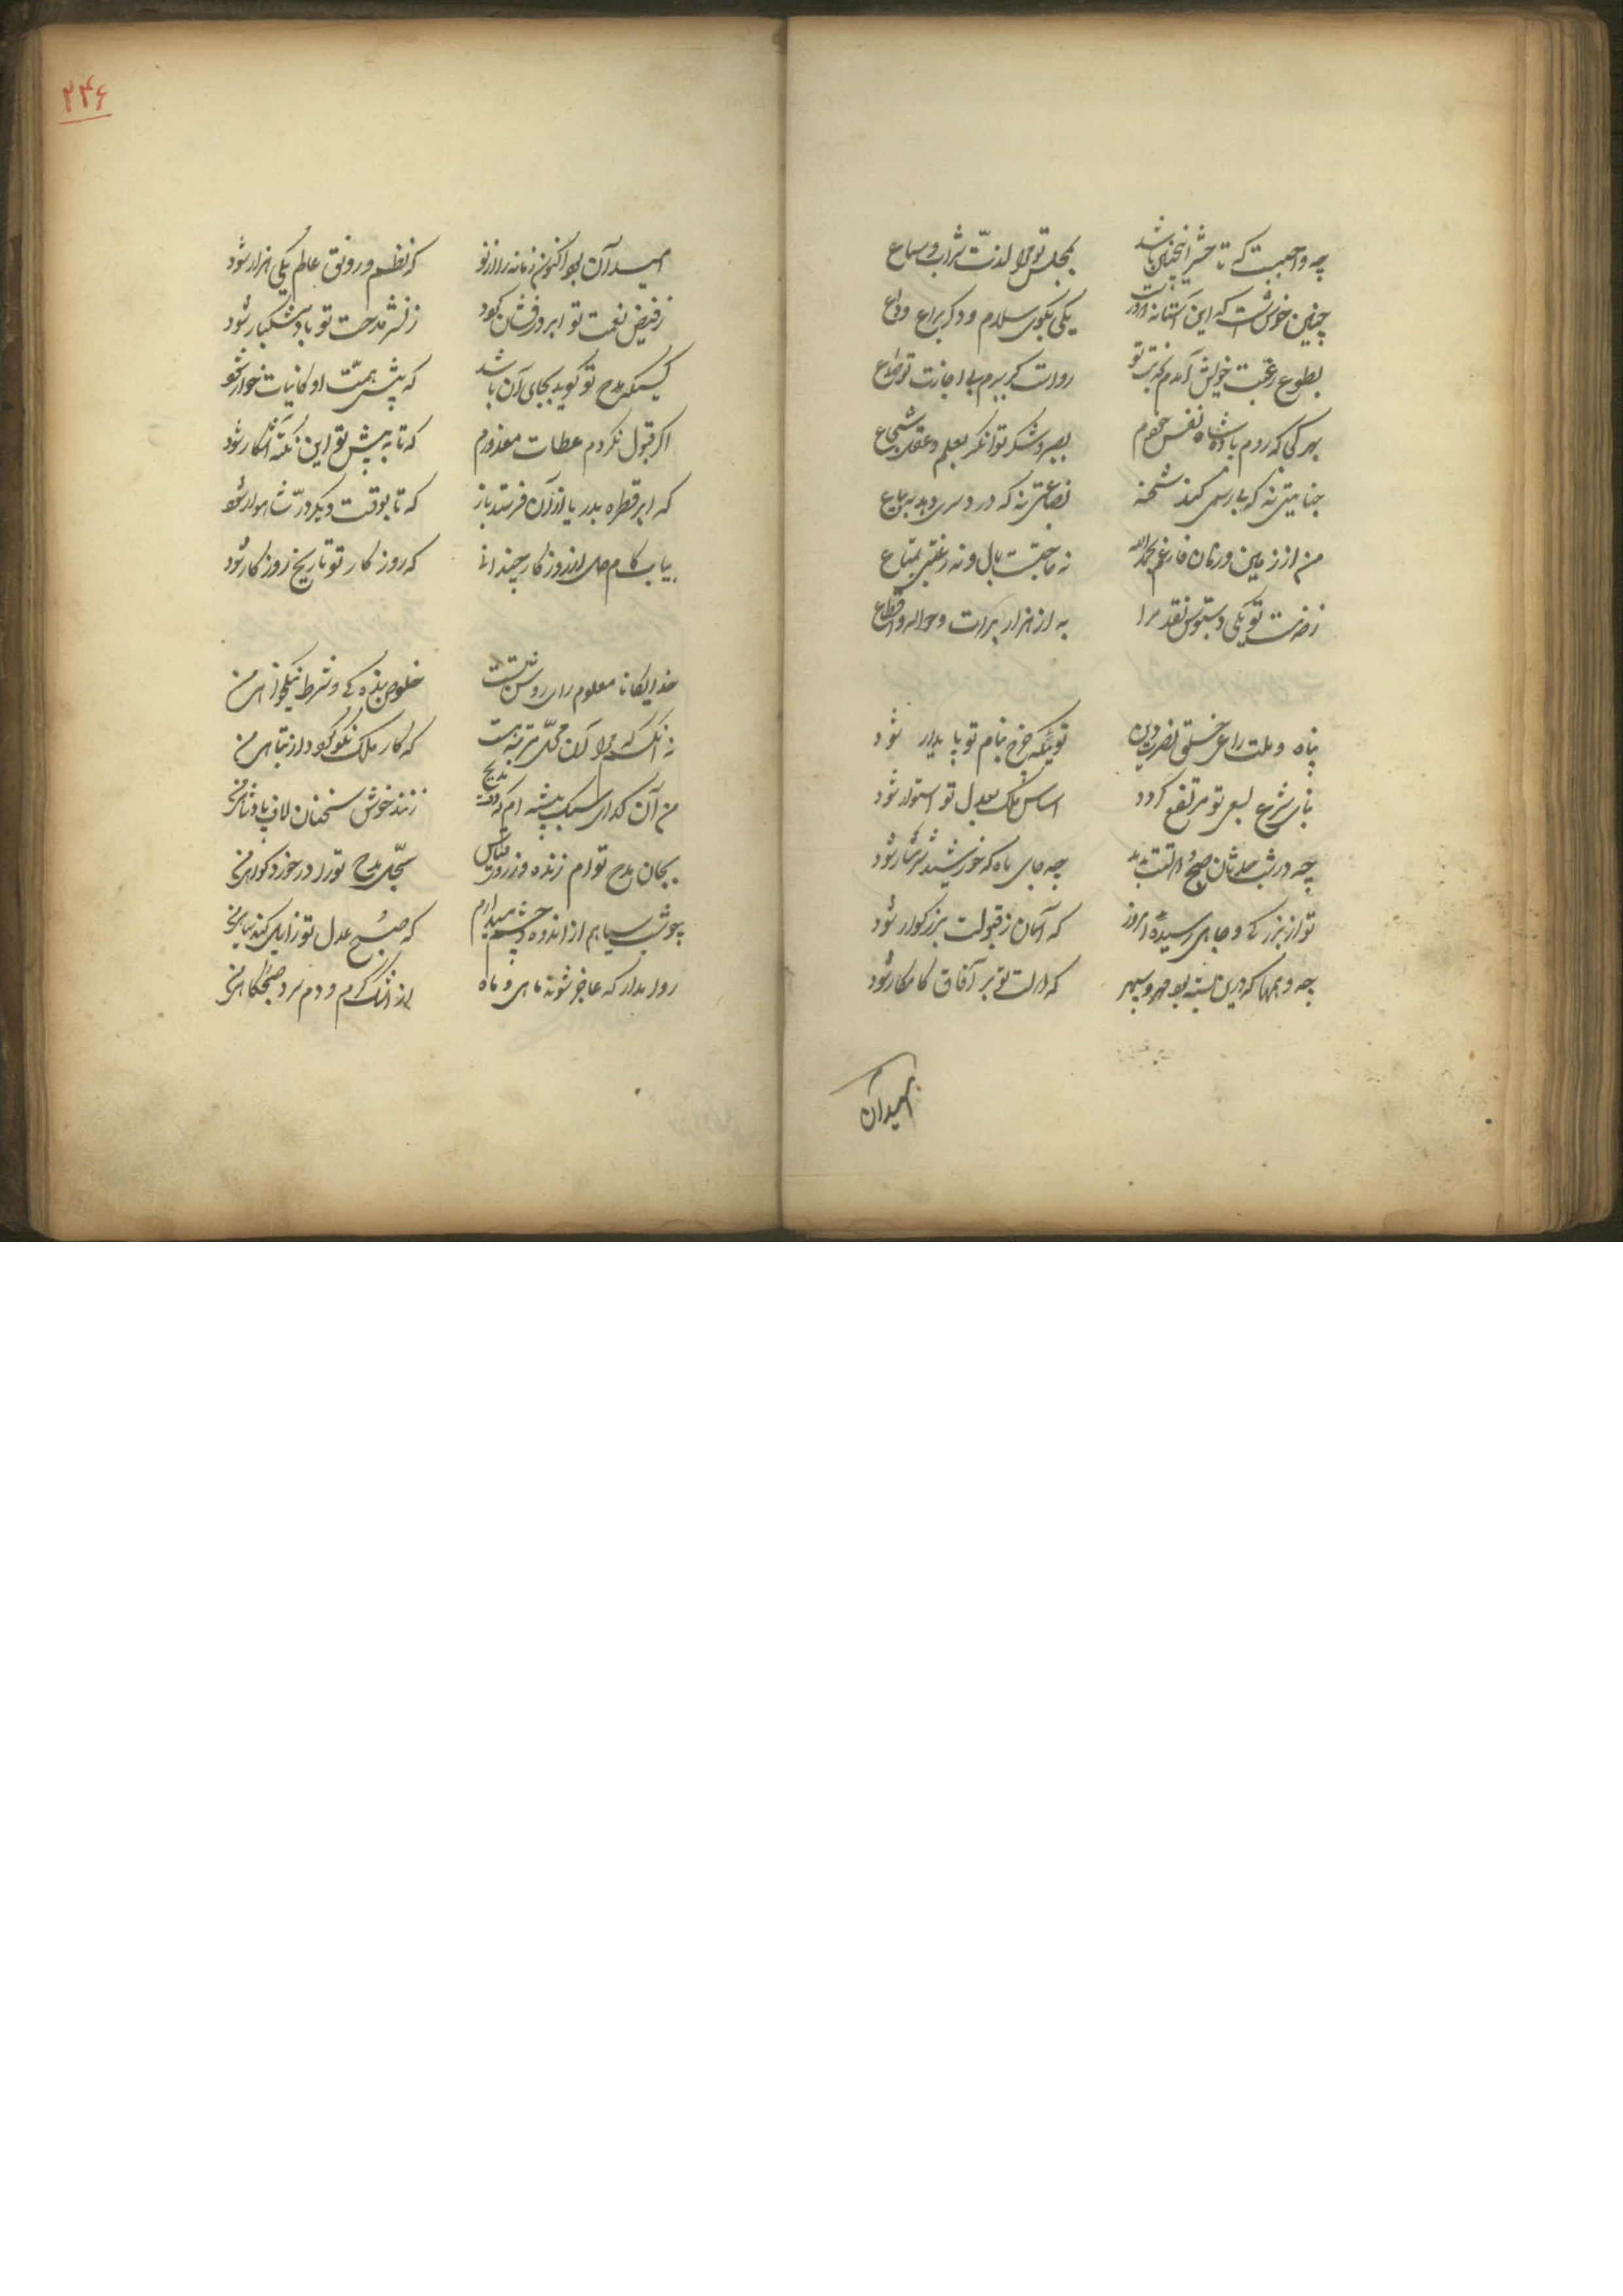 چه واجبست که تا حشر اینچنین باشد بمجلس تو مرا لذت شراب و سماع
چنین خوش است که این آستانه یکی بکوی سلام و دکر برای وداع
بطوع و رغبت خویش آمدم بخدمت تو روا بود کر بروم بی اجازت تو
بهر کجا که روم پادشاه نفس خودم بصبر و شکر توانکر بعلم و عقل شجاع
جنایتی نه که بی رسمی کند شحنه بضاعتی نه که درد سری دهد بیاع
من از زمین و زمان فارغم بحمدالله نه حاجتست بمال و نه رغبتی بمتاع
ز حضرت تو یکی دستبوس نقد مرا به از هزار برات و حواله و اقطاع
پناه دولت و ملت نصرت دین تویی که چرخ بنام تو پایدار شود
بنای شرع بسعی تو مرتفع کردد اساس ملک بعدل تو استوار شود
چه در شب صبح چه جای ماه که خورشید شود
تو از بزرکی و جاهی رسیده امروز که آسمان ز قبولت بزرکوار شود
چه وهمها که درین بسته بود مهر و سپهر که رایت تو بر آفاق کامکار شود
امید آن
۲۴۶
امید آن بود اکنون زمانه را از تو که نظم و رونق عالم یکی هزار شود
ز فیض نعمت تو ابر درفشان کردد ز نشر مدحت تو باد مشکبار شود
کسیکه مدح تو کوید بجای آن باشد که پیش همت او کاینات خوار شود
اکر قبول نکردم عطات معذورم که تا به پیش تو این نکته آشکار شود
که ابر قطره بدریا از آن فرستد باز که تا بوقت دکر در شاهوار شود
بیاب کام دل از روزکار چندانی که روز کار تو تاریخ روزکار شود
خدایکانا معلوم رای روشن تست خلوص بنده کی و شرط نیکخواهی من
نه آنکسم که مرا آن محل و مرتبه است که کار ملک نکو کردد از تباهی من
من آن کدای سبک پیشه ام که وقت مدیح زنند خوش سخنان لاف پادشاهی من
بجان مدح تو ام زنده و زروی قیاس سجل مدح تو را در خورد کواهی من
چو شب سیاهم از اندوه و چشم میدارم که صبح عدل تو زایل کند سیاهی من
روا مدار که عاجز شوند ماهی و ماه از اشک کرم و دم سرد صبحکاهی من